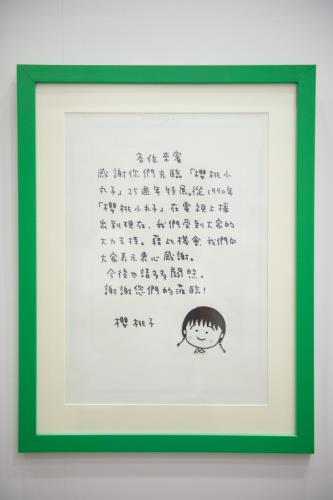 各位來賓
感謝你們光臨「櫻桃小
丸子」25週年特展。從1990年
「櫻桃小丸子」在電視上播
出到現在，我們受到大家的
大力支持。藉此機會，我們向
大家表示衷心感謝。
今後也請多多關照。
謝謝您們的蒞臨！
櫻桃子